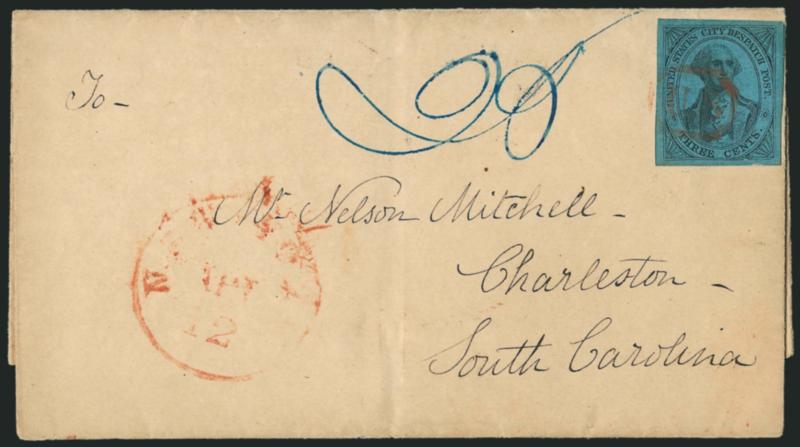 To-
UNITED STATES CITY DESPATCH POST.
THREE CENTS.
Mr. Nelson Mitchell-
Charleston-
South Carolina
12